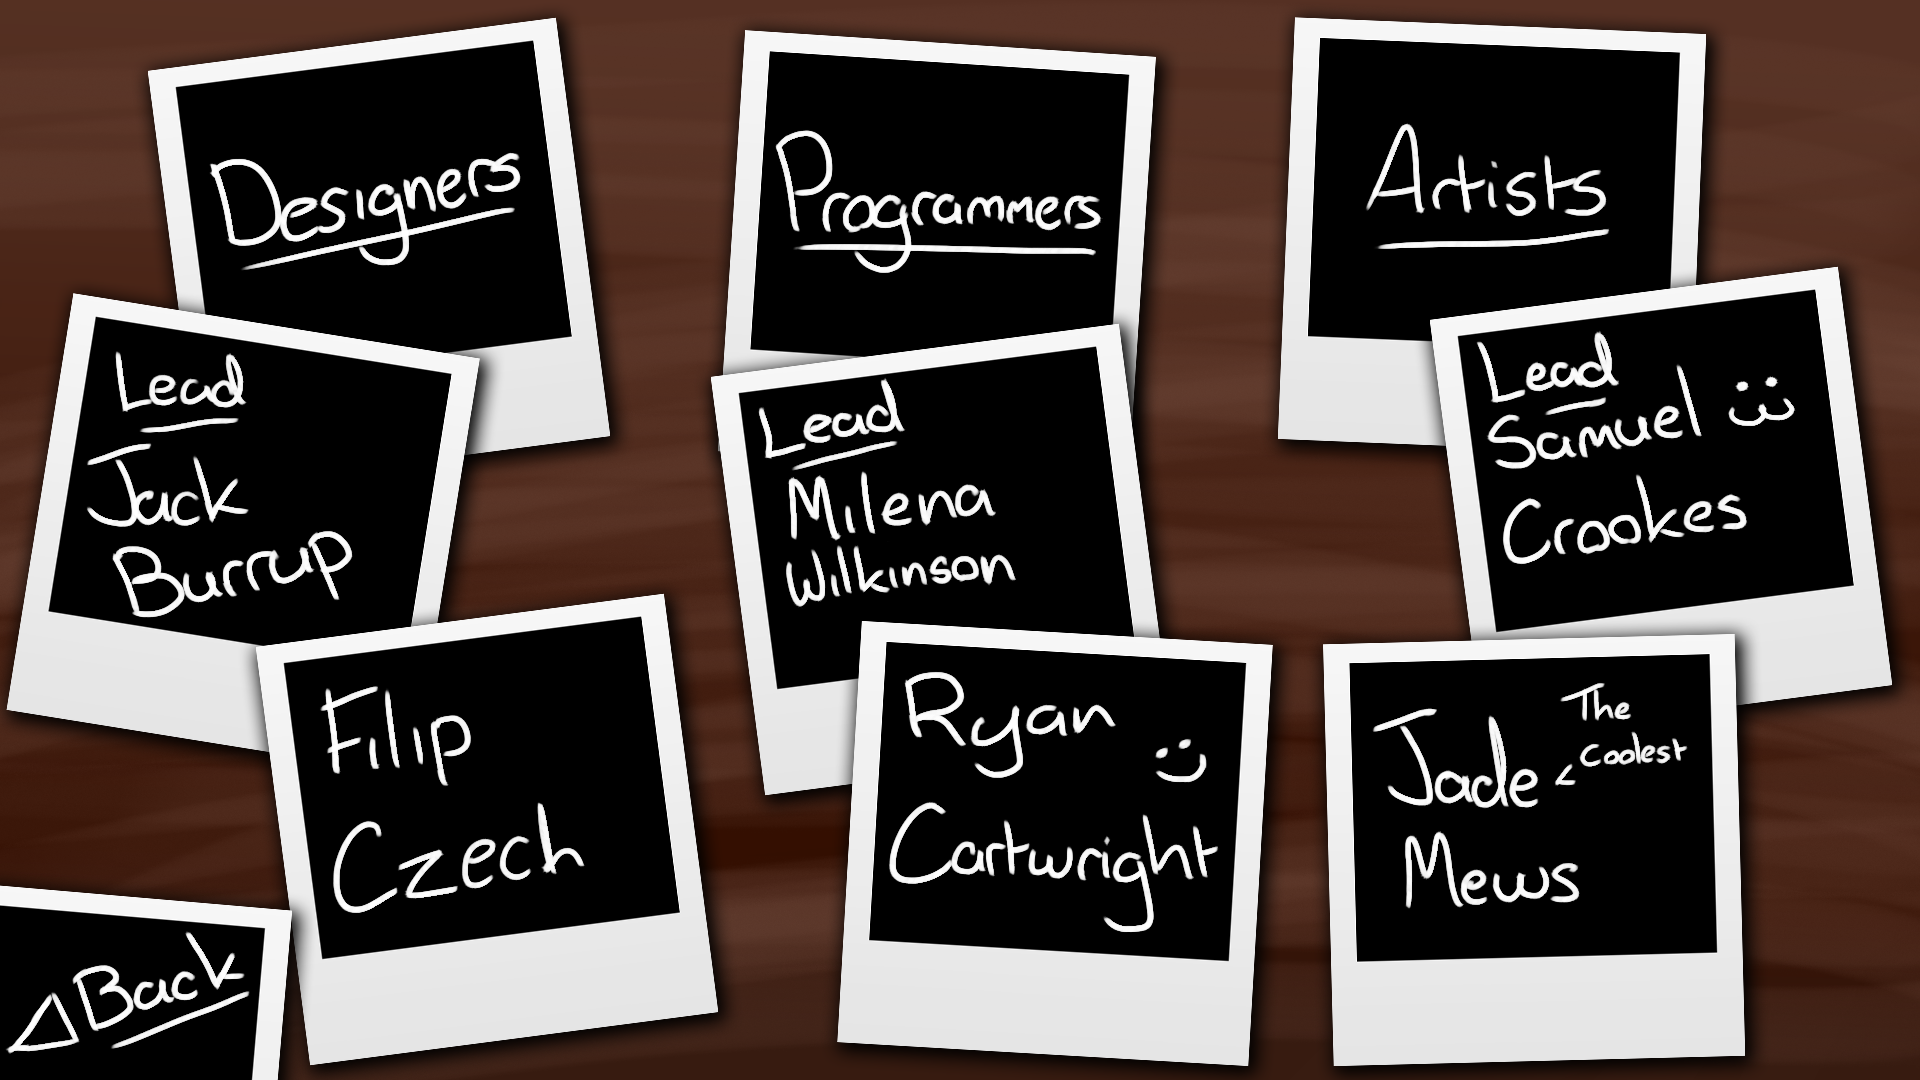 Designers
Lead
Jack
Burrup
Filip
Czech
Programmers
Lead
Milena
Wilkinson
Ryan :)
Cartwright
Artists
Lead
Samuel :3
Crookes
Jade < The
Coolest
Mews
Back